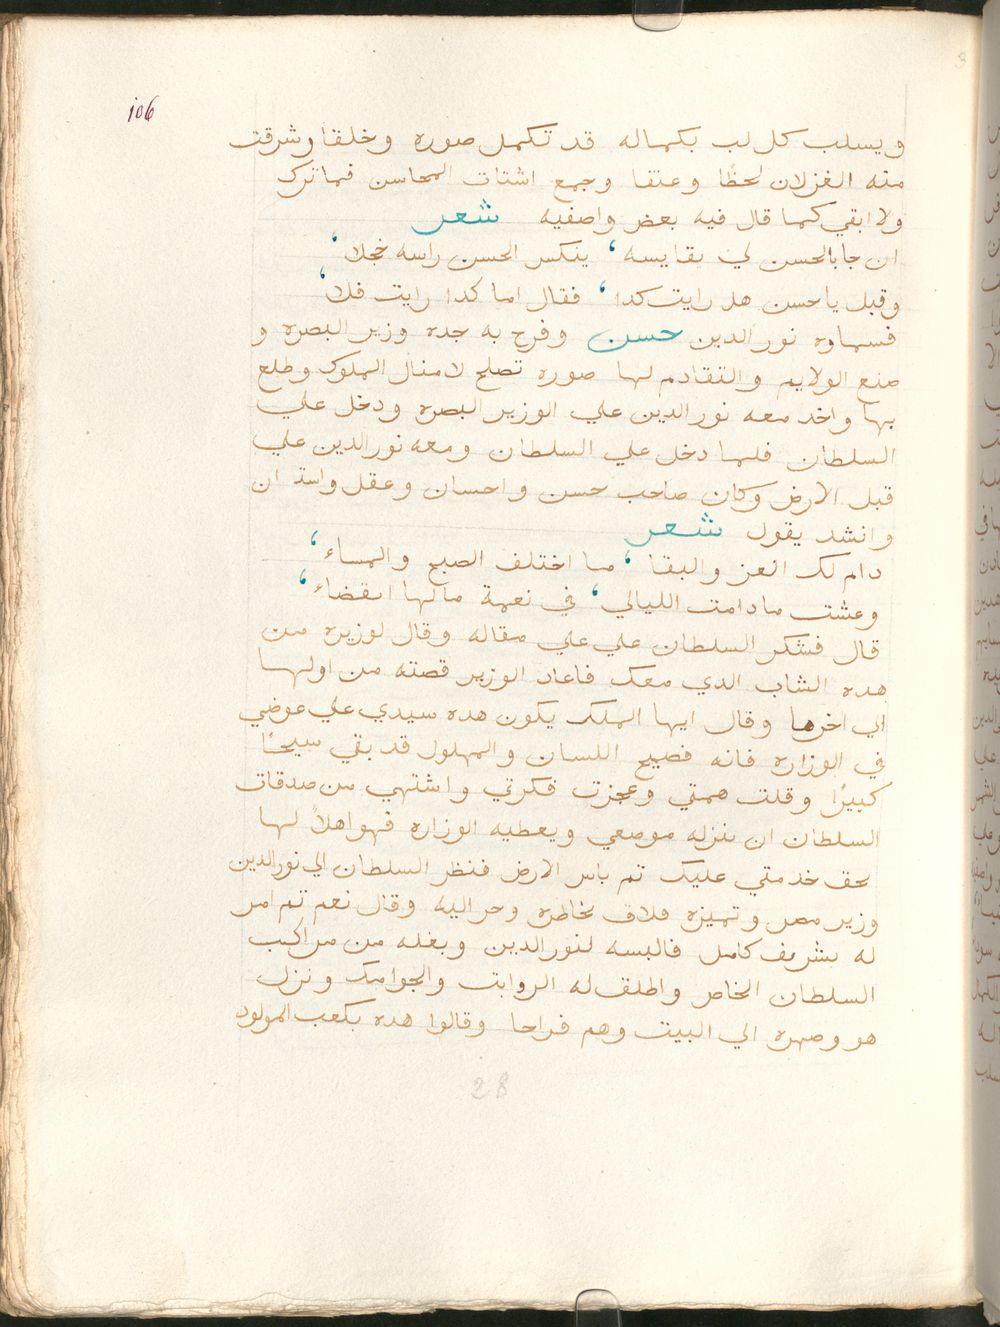 106
ويسلب كل لب بكماله قد تكمل صوره وخلقا وشرقت
منه الغزلان لحظًا وعنقا وجمع اشتات المحاسن فما ترك
ولا ابقي كما قال فيه بعض واصفيه شعر
ان جا بالحسن لي يقايسه ، ينكس الحسن راسه خجلا ،
وقيل يا حسن هل رايت كدا ، فقال اما كدا رايت فلا ،
فسماوه نور الدين حسن وفرح به جده وزير البصره و
صنع الولايم والتقادم لها صوره تصلح لامثال الملوك وطلع
بها واخد معه نور الدين علي الوزير البصره ودخل علي
السلطان فلما دخل علي السلطان ومعه نور الدين علي
قبل الارض وكان صاحب حسن واحسان وعقل ان
وانشد يقول شعر
دام لك العز والبقا ، ما اختلف الصبح والمساء ،
وعشت مادامت الليالي ، في نعمة مالها انقضاء ،
قال فشكر السلطان علي علي مقاله وقال لوزيره من
هده الشاب الدي معك فاعاد الوزير قصته من اولها
الي اخرها وقال ايها الملك يكون هده سيدي علي عوضي
في الوزاره فانه فصيح اللسان والمملوك قد بقي شيخًا
كبيرًا وقلت همتي وعجزت فكرتي واشتهي من صدقات
السلطان ان ينزله موضعي ويعطيه الوزاره فهو اهلاً لها
بحق خدمتي عليك تم باس الارض فنظر السلطان الي نور الدين
وزير مصر وتميزه فلاق بخاطره وحر اليه وقال نعم تم امر
له بشريف كامل فالبسه لنور الدين وبغله من مراكيب
السلطان الخاص واطلق له الرواتب والجوامك ونزل
هو وصهره الي البيت وهم فراحا وقالوا هده بكعب المولود
28